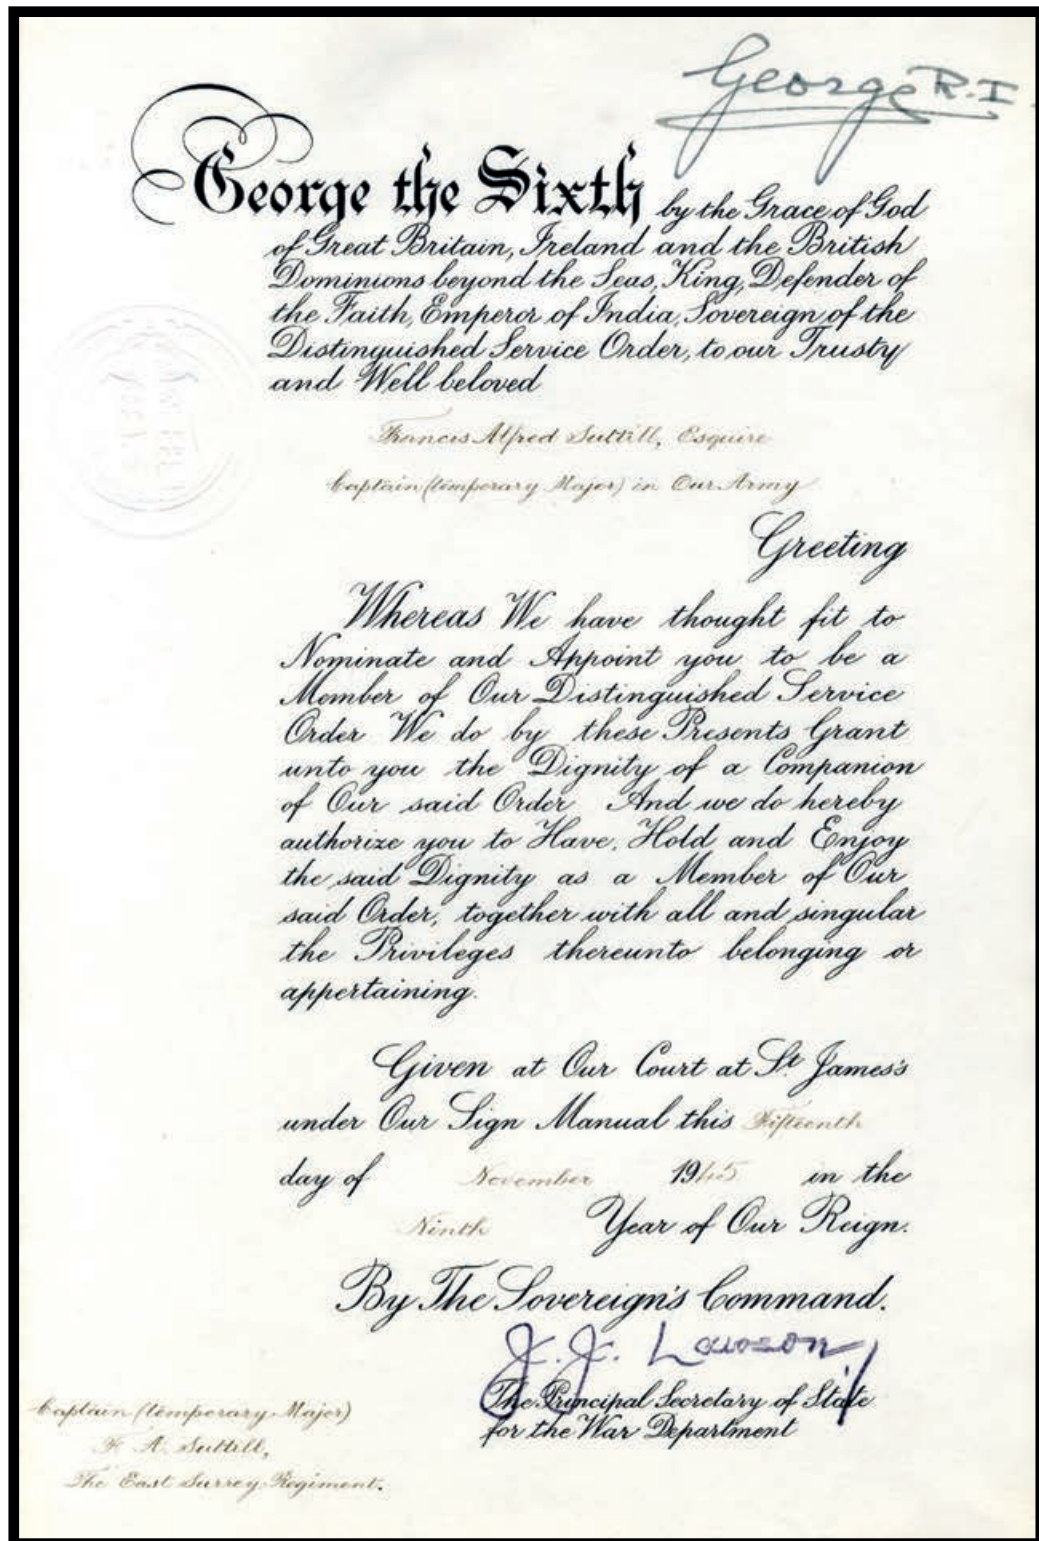 George R.I.
George the Sixth by the Grace of God
of Great Britain, Ireland and the British
Dominions beyond the Seas, King, Defender of
the Faith, Emperor of India, Sovereign of the
Distinguished Service Order, to our Trusty
and Well beloved
Francis Alfred Suttill, Esquire
Captain (temporary Major) in Our Army
Greeting
Whereas We have thought fit to
Nominate and Appoint you to be a
Member of Our Distinguished Service
Order We do by these Presents Grant
unto you the Dignity of a Companion
of Our said Order And we do hereby
authorize you to Have, Hold and Enjoy
the said Dignity as a Member of Our
said Order, together with all and singular
the Privileges thereunto belonging or
appertaining.
Given at Our Court at St. James's
under Our Sign Manual this Fifteenth
day of November 1945 in the
Ninth Year of Our Reign.
By The Sovereign's Command.
J. J. Lawson
The Principal Secretary of State
for the War Department
Captain (temporary Major)
F. A. Suttill,
The East Surrey Regiment.